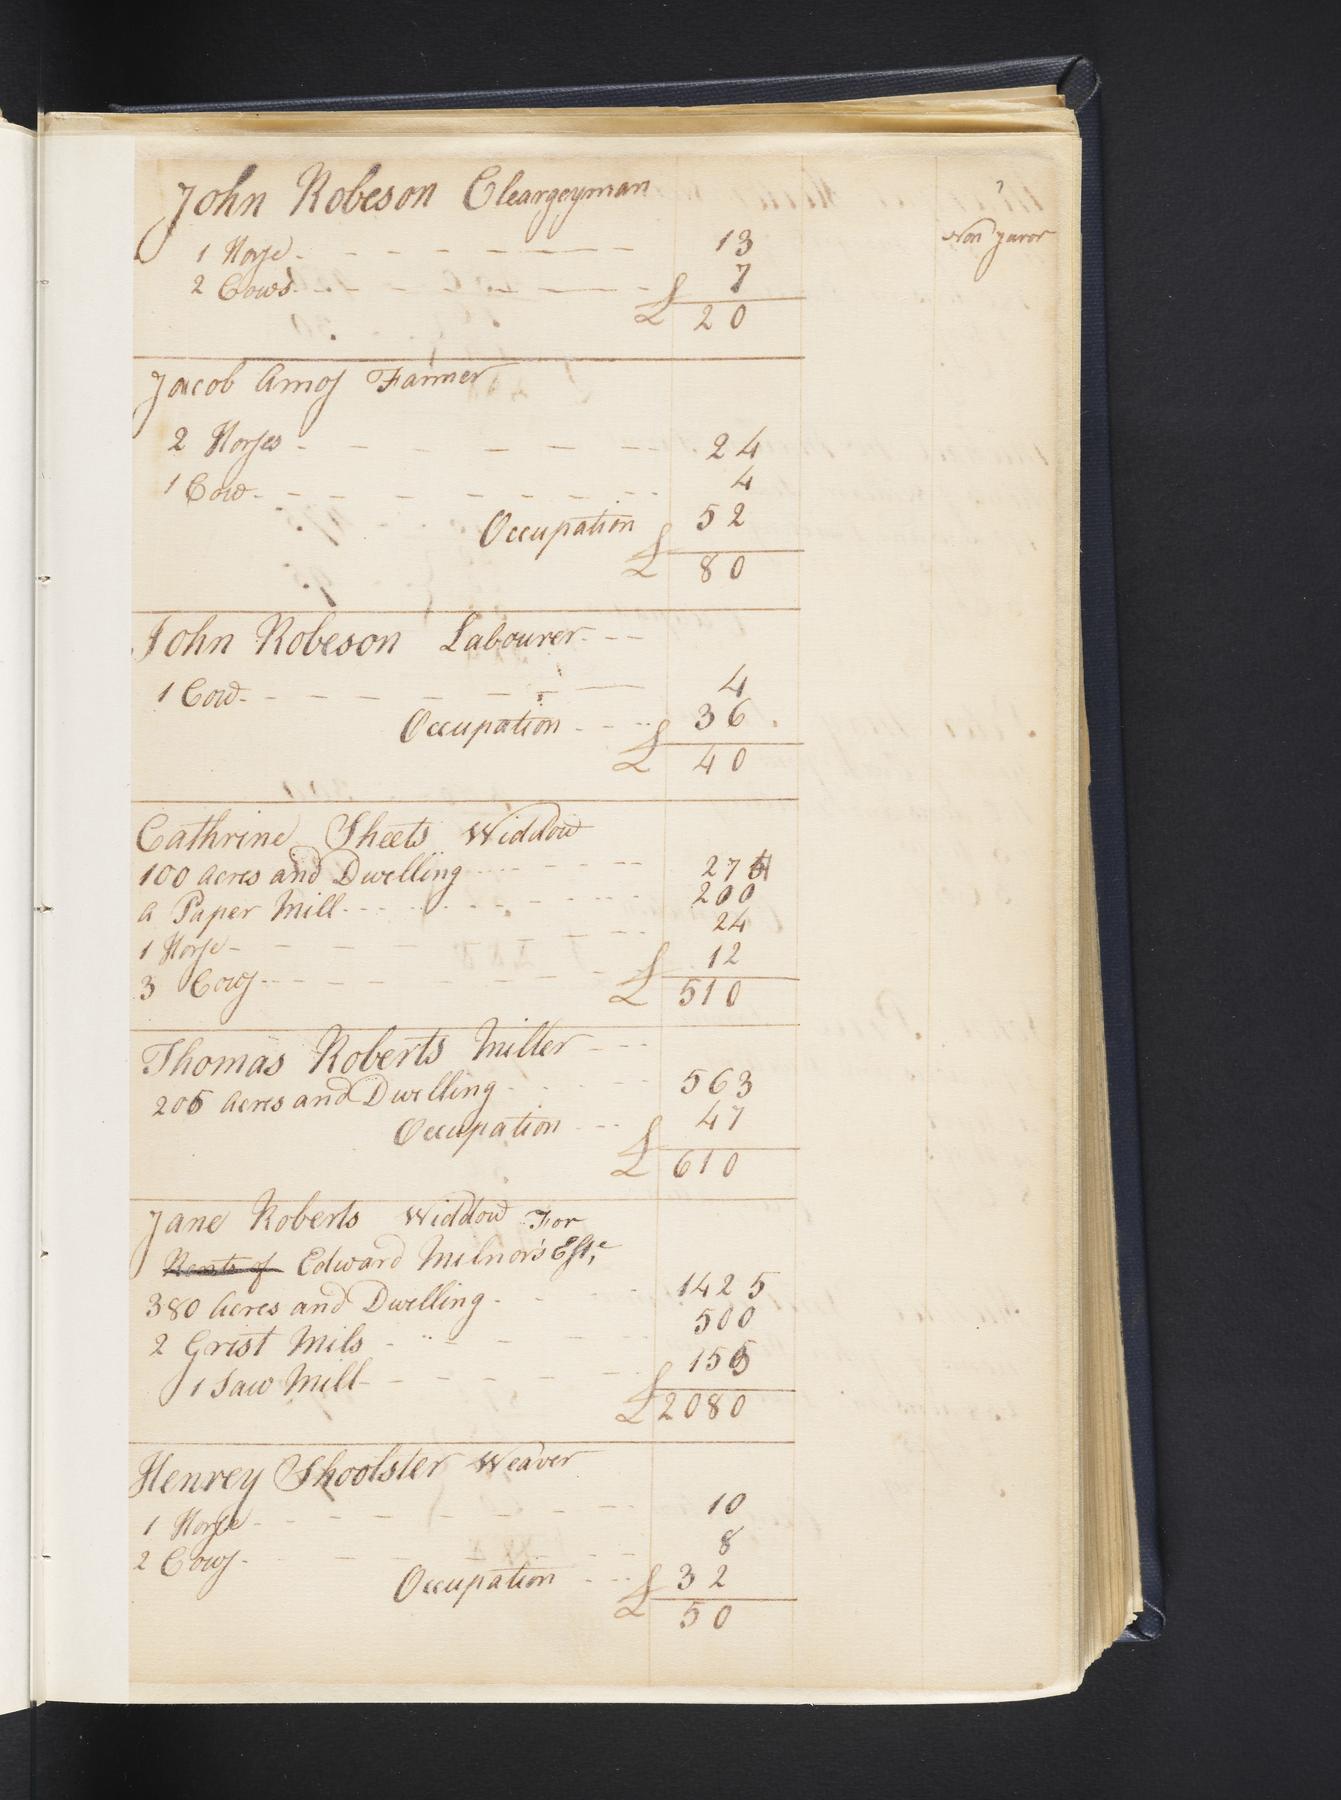 John Robeson Cleargeyman
Non juror
1 Horse 13
2 Cows 7
£ 20
Jacob Amos Farmer
2 Horses 24
1 Cow 4
Occupation 52
£ 80
John Robeson Labourer
1 Cow 4
Occupation 36
£ 40
Cathrine Sheets Widdow
100 Acres and Dwelling 274
a Paper Mill 200
1 Horse 24
3 Cows 12
£ 510
Thomas Roberts Miller
205 Acres and Dwelling 563
Occupation 47
£ 610
Jane Roberts Widdow For
Rents of Edward Milnor's Este
380 Acres and Dwelling 1425
2 Grist Mils 500
1 Saw Mill 155
£ 2080
Henrey Shoolster Weaver
1 Horse 10
2 Cows 8
Occupation 32
£ 50